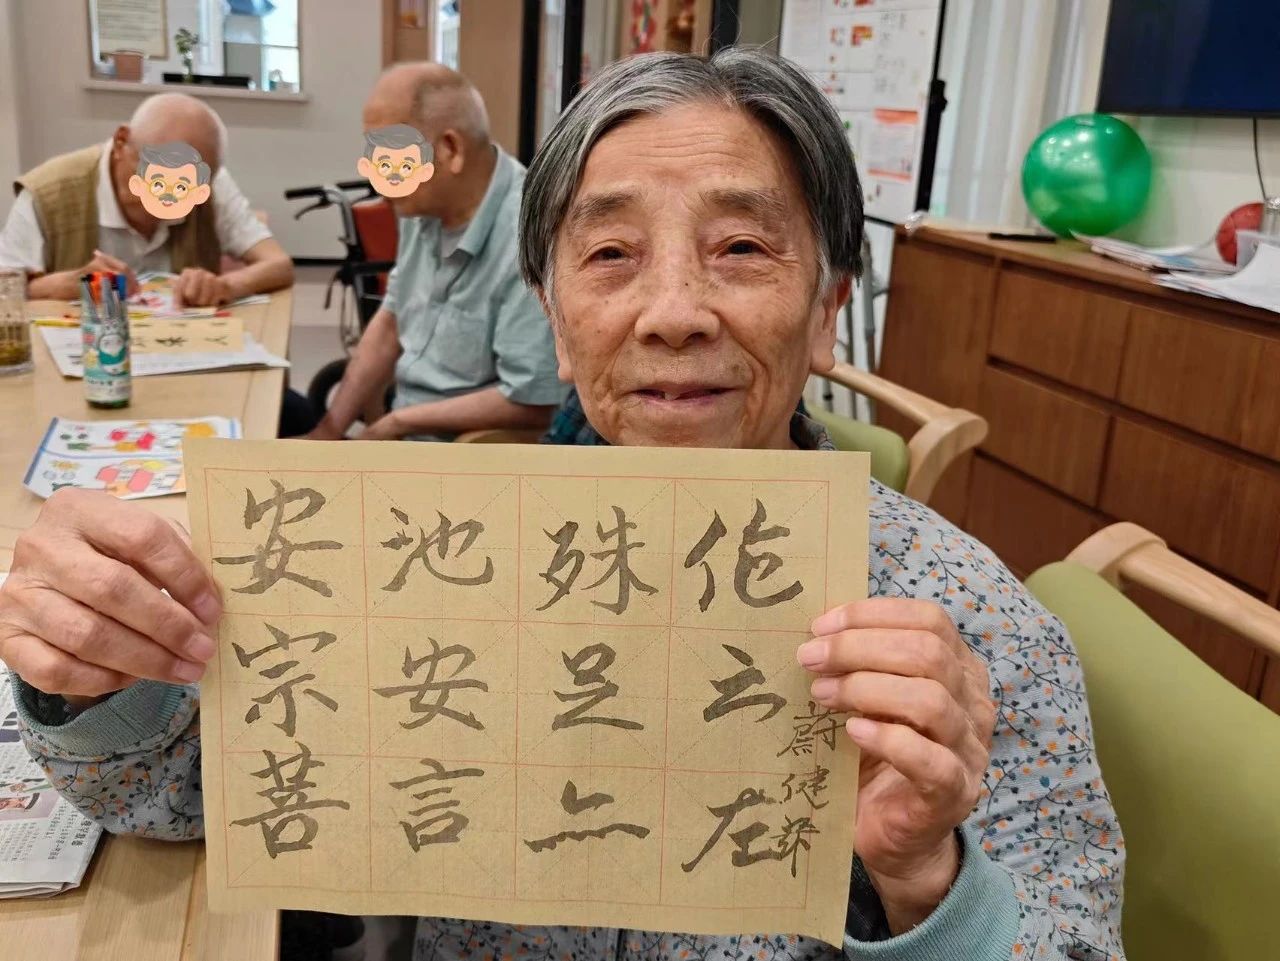 安池殊佗
宗安足云
菩言左
蔚健